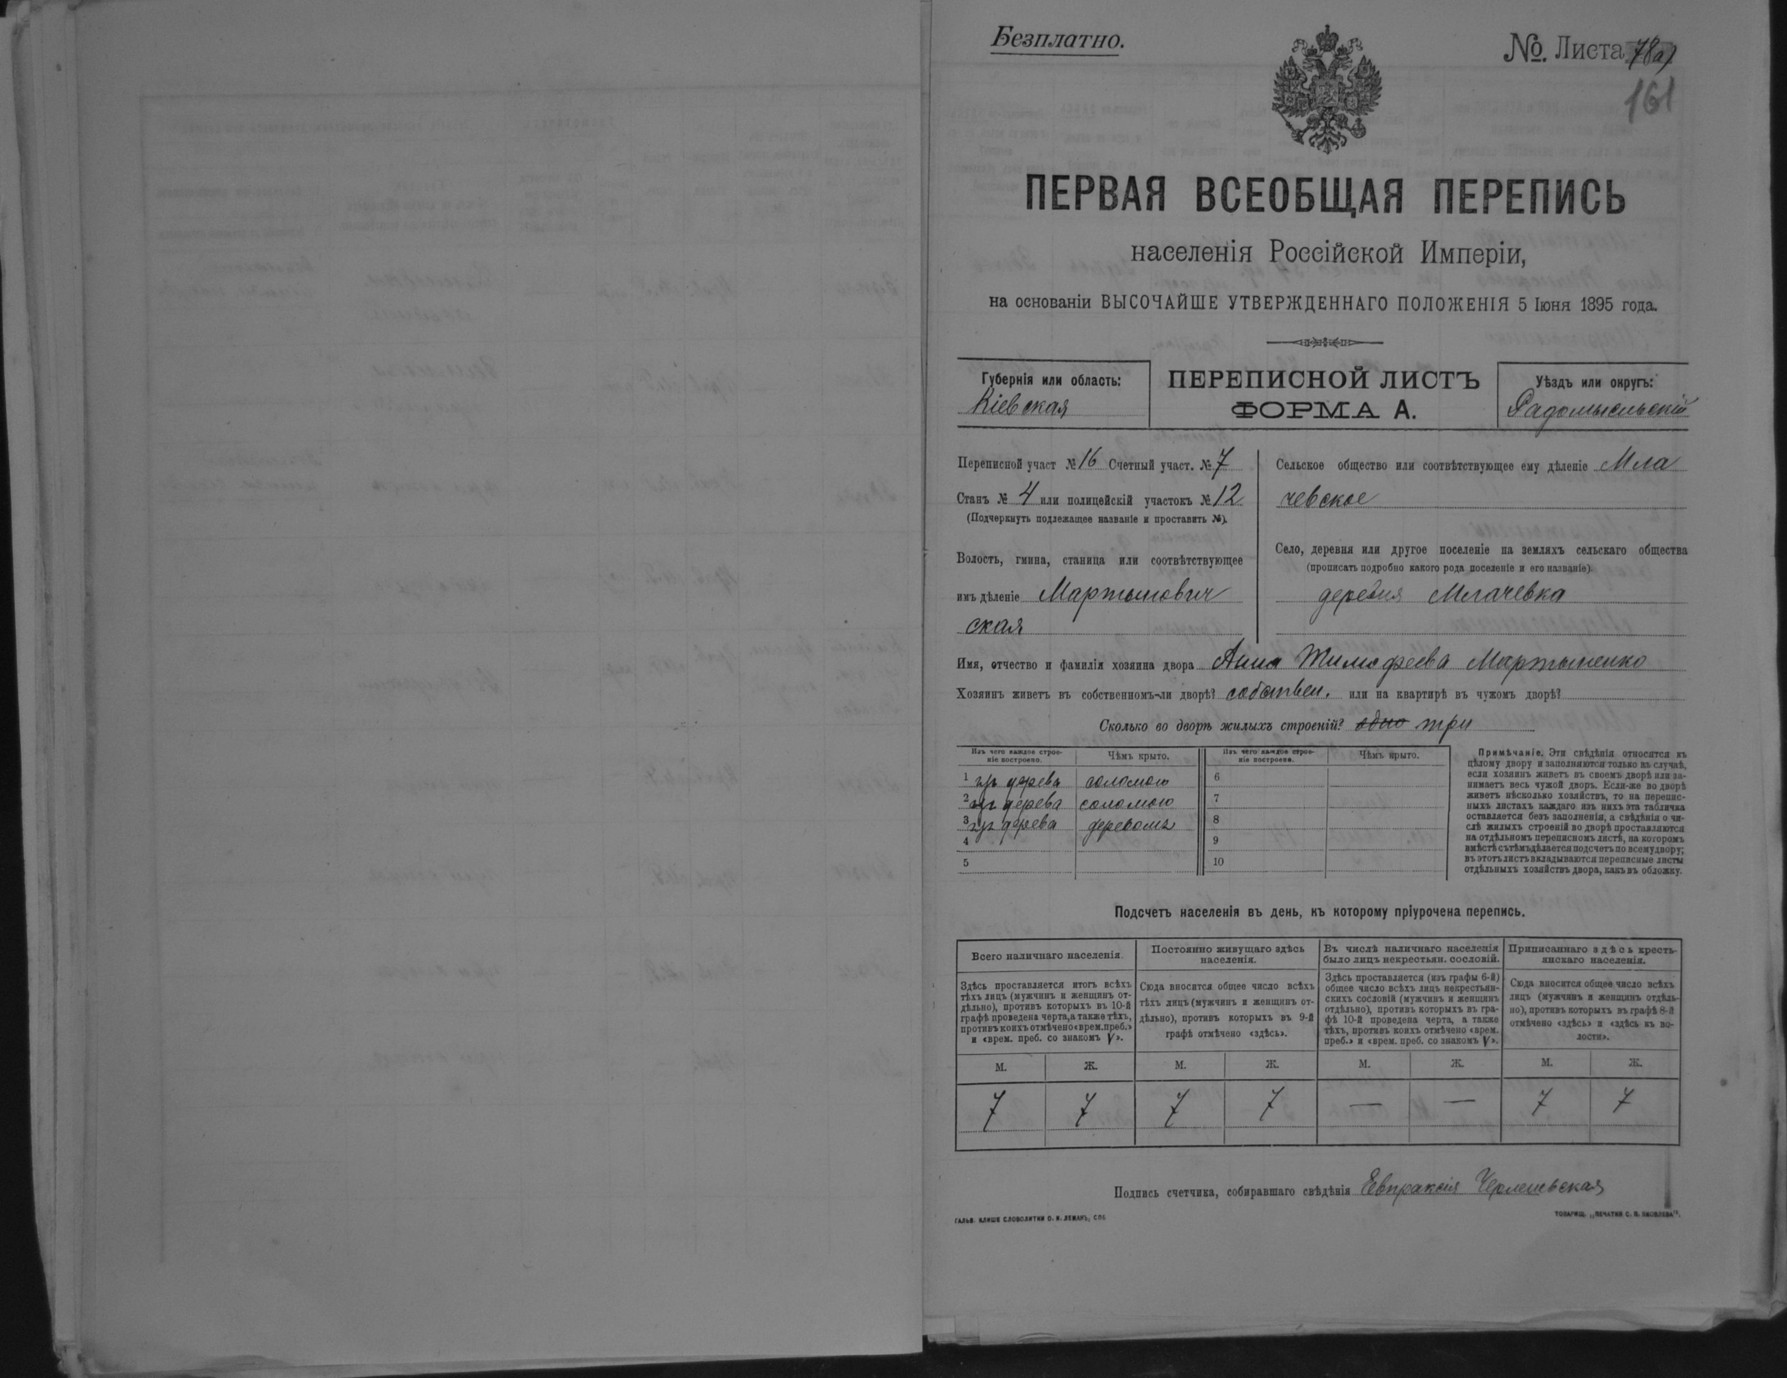 Безплатно.
№. Листа 78а)
161
ПЕРВАЯ ВСЕОБЩАЯ ПЕРЕПИСЬ
населенія Россійской Имперіи,
на основаніи ВЫСОЧАЙШЕ УТВЕРЖДЕННАГО ПОЛОЖЕНІЯ 5 Іюня 1895 года.
Губернія или область:
Кіевская
ПЕРЕПИСНОЙ ЛИСТЪ
ФОРМА А.
Уѣздъ или округъ:
Радомысльскій
Переписной участ № 16 Счетный участ. № 7
Станъ № 4 или полицейскій участокъ № 12
(Подчеркнуть подлежащее названіе и проставить №).
Волость, гмина, станица или соотвѣтствующее
имъ дѣленіе Мартынович
ская
Сельское общество или соотвѣтствующее ему дѣленіе Мла
чевское
Село, деревня или другое поселеніе на земляхъ сельскаго общества
(прописать подробно какого рода поселеніе и его названіе).
деревня Млачевка
Имя, отчество и фамилія хозяина двора Анна Тимофеева Мартыненко
Хозяинъ живетъ въ собственномъ-ли дворѣ? собствен. или на квартирѣ въ чужомъ дворѣ?
Сколько во дворѣ жилыхъ строеній? одно три
Изъ чего каждое строе-
ніе построено.
Чѣмъ крыто.
Изъ чего каждое строе-
ніе построено.
Чѣмъ крыто.
1 изъ дерева соломою 6
2 изъ дерева соломою 7
3 изъ дерева деревомъ 8
4 9
5 10
Примѣчаніе. Эти свѣдѣнія относятся къ
цѣлому двору и заполняются только въ случаѣ,
если хозяинъ живетъ въ своемъ дворѣ или за-
нимаетъ весь чужой дворъ. Если-же во дворѣ
живетъ нѣсколько хозяйствъ, то на перепис-
ныхъ листахъ каждаго изъ нихъ эта табличка
оставляется безъ заполненія, а свѣдѣнія о чи-
слѣ жилыхъ строеній во дворѣ проставляются
на отдѣльномъ переписномъ листѣ, на которомъ
вмѣстѣ съ тѣмъ дѣлается подсчетъ по всему двору;
въ этотъ листъ вкладываются переписные листы
отдѣльныхъ хозяйствъ двора, какъ въ обложку.
Подсчетъ населенія въ день, къ которому пріурочена перепись.
Всего наличнаго населенія.
Здѣсь проставляется итогъ всѣхъ
тѣхъ лицъ (мужчинъ и женщинъ от-
дѣльно), противъ которыхъ въ 10-й
графѣ проведена черта, а также тѣхъ,
противъ коихъ отмѣчено «врем. преб.»
и «врем. преб. со знакомъ V».
Постоянно живущаго здѣсь
населенія.
Сюда вносится общее число всѣхъ
тѣхъ лицъ (мужчинъ и женщинъ от-
дѣльно), противъ которыхъ въ 9-й
графѣ отмѣчено «здѣсь».
Въ числѣ наличнаго населенія
было лицъ некрестьян. сословій.
Здѣсь проставляется (изъ графы 6-й)
общее число всѣхъ лицъ некрестьян-
скихъ сословій (мужчинъ и женщинъ
отдѣльно), противъ которыхъ въ гра-
фѣ 10-й проведена черта, а также
тѣхъ, противъ коихъ отмѣчено «врем.
преб.» и «врем. преб. со знакомъ V».
Приписаннаго здѣсь кресть-
янскаго населенія.
Сюда вносится общее число всѣхъ
лицъ (мужчинъ и женщинъ отдѣль-
но), противъ которыхъ въ графѣ 8-й
отмѣчено «здѣсь» и «здѣсь къ во-
лости».
М. Ж. М. Ж. М. Ж. М. Ж.
7 7 7 7 — — 7 7
Подпись счетчика, собиравшаго свѣдѣнія Евпраксія
ГАЛЬВ. КЛИШЕ СЛОВОЛИТНИ О. И. ЛЕМАНЪ, СПБ.
ТОВАРИЩ. „ПЕЧАТНИ С. П. ЯКОВЛЕВА".